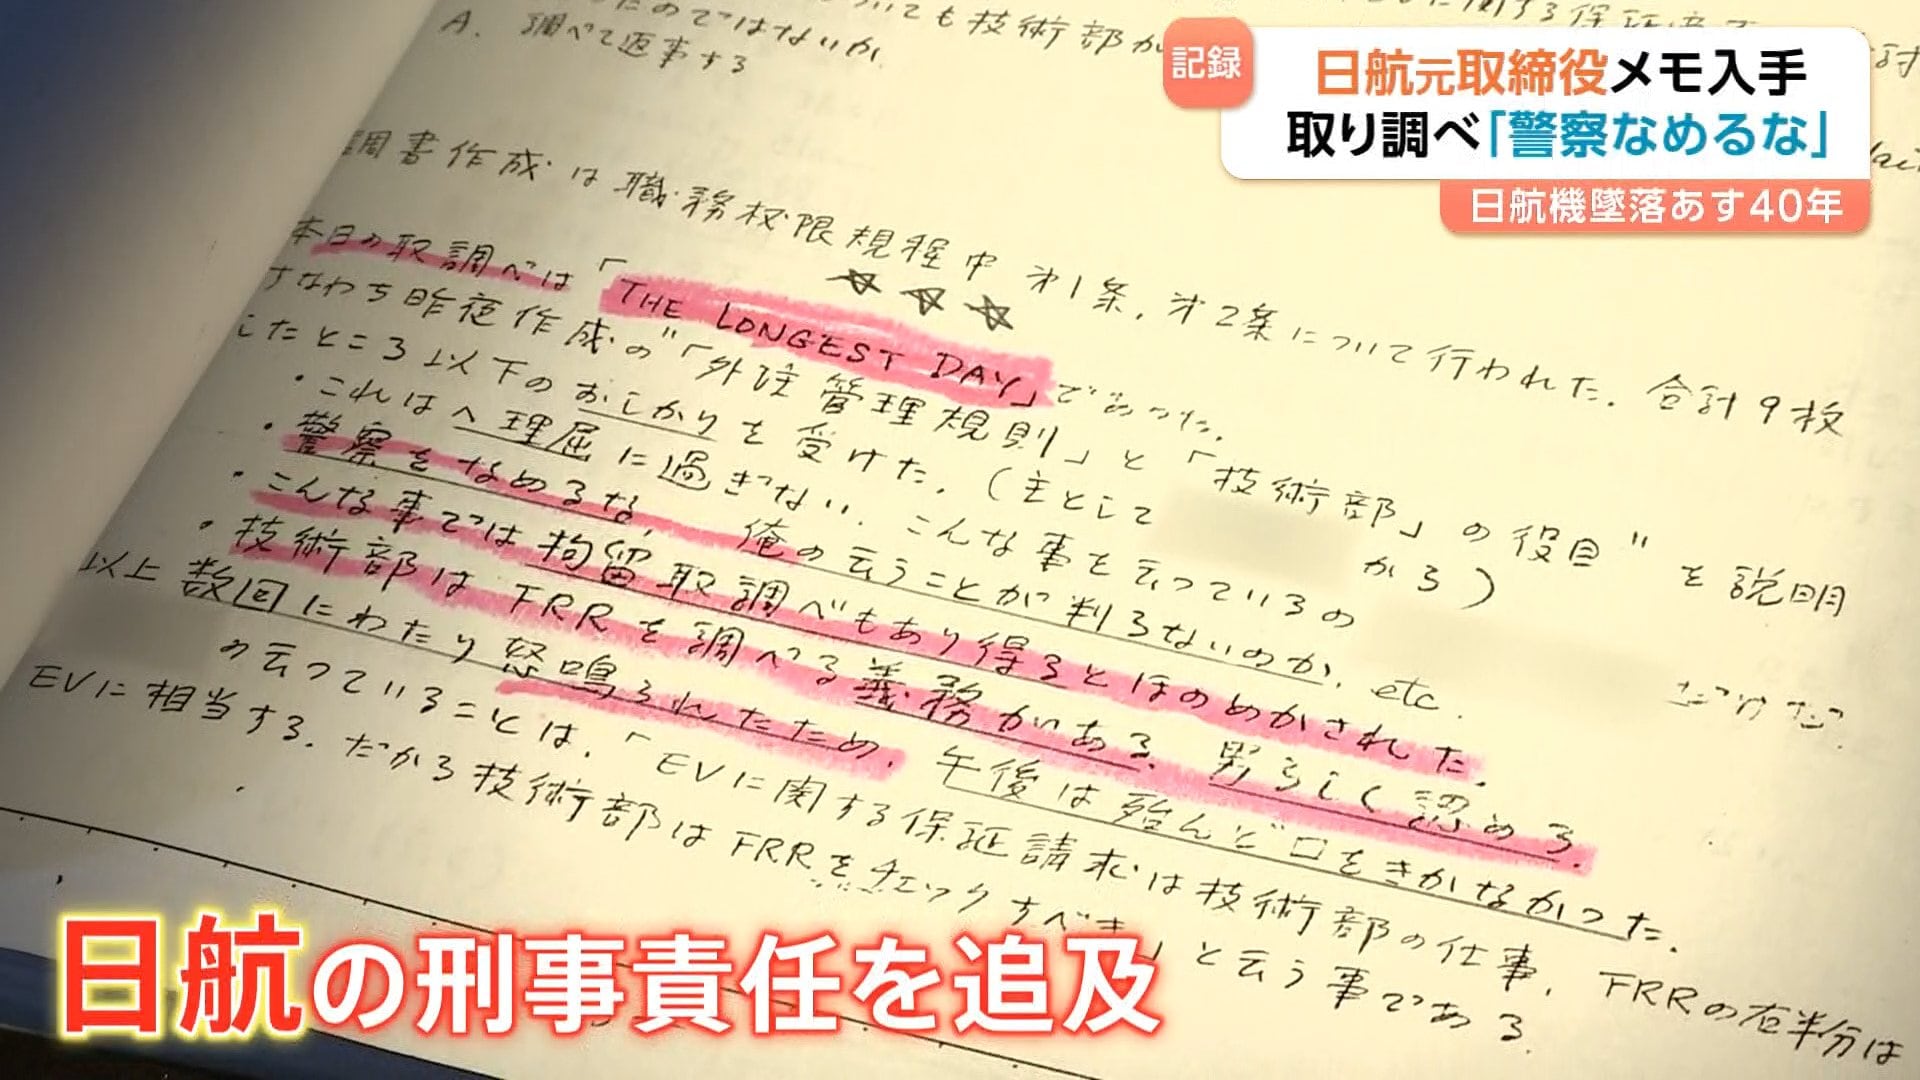 記録
日航元取締役メモ入手
取り調べ「警察なめるな」
日航機墜落あす40年
のではないか
ても技術部か
に関する保証
A. 調べて返事する
調書作成は職務権限規程中 オ1条,オ2条について行われた. 合計9枚
本日の取調べは「THE LONGEST DAY」であった.
すなわち昨夜作成の"「外注管理規則」と「技術部」の役目"を説明
したところ以下のおしかりを受けた.(主として から)
・これはへ理屈に過ぎない. こんな事を云っているの だけだ.
・警察をなめるな, 俺の云うことが判らないのか. etc.
・こんな事では拘留取調べもあり得るとほのめかされた.
・技術部はFRRを調べる義務がある. 男らしく認めろ.
以上数回にわたり怒鳴られたため, 午後は殆んど口をきかなかった.
の云っていることは,「EVに関する保証請求は技術部の仕事, FRRの右半分は
EVに相当する. だから技術部はFRRをチェックすべき」と云う事である.
日航の刑事責任を追及